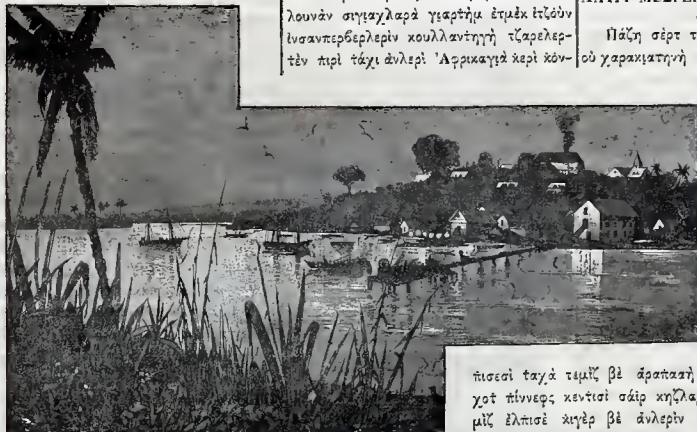 λουνὰν σιγιαχλαρὰ γιαρτὴμ ἐτμὲκ ἐτζοὺν
ἰνσανπερβερλερὶν κουλλαντηγὴ τζαρελερ-
τὲν πιρὶ τάχι ἀνλερὶ Ἀφρικαγιὰ κερὶ κόν-
Πάζη σέρτ τ
οὐ χαρακιατηνὴ
πισεσὶ ταχὰ τεμὶζ βὲ
χοτ πίννεφς κεντισὶ σάϊρ κηζλα
μὶζ ἐλπισὲ κιγὲρ βὲ ἀνλερὶν